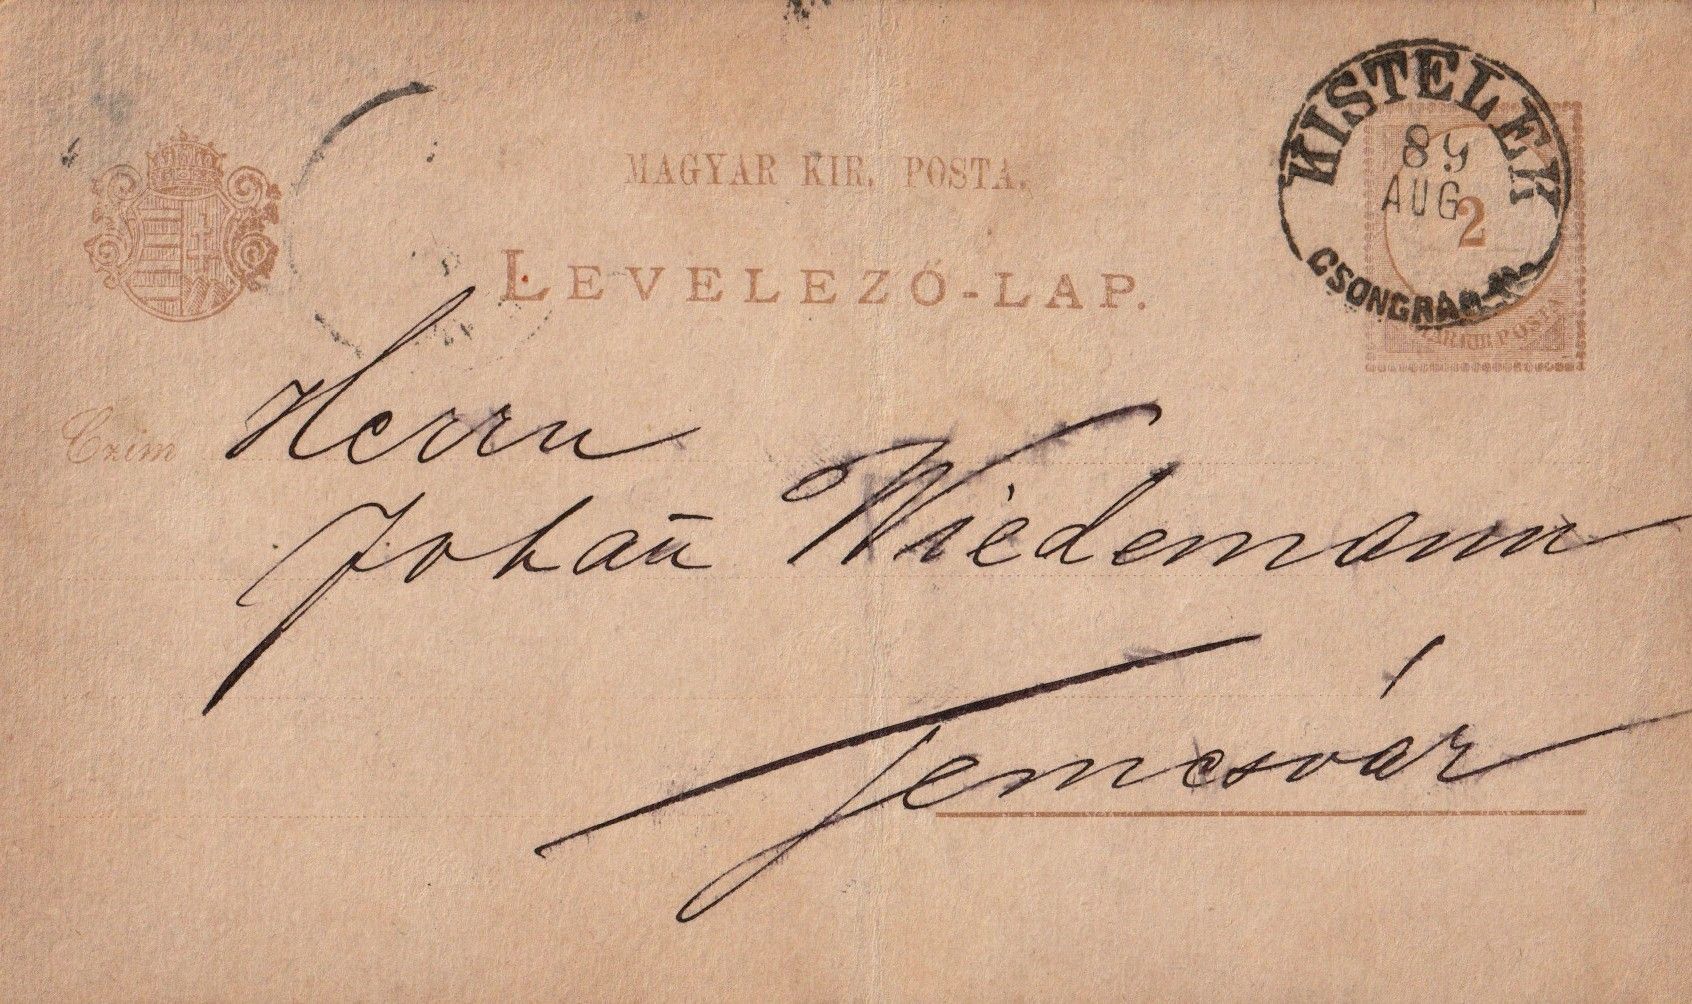 MAGYAR KIR. POSTA.
LEVELEZŐ-LAP.
KISTELEK
89
AUG
CSONGRÁD M.
2
Czim
Herrn
Johan̄ Wiedemann
Temesvár